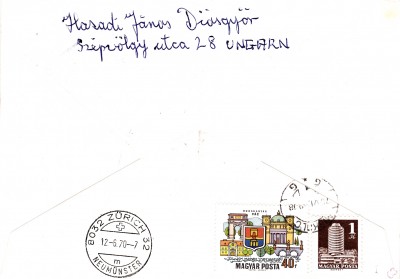 Hasadi János Diósgyőr
Szépvölgy utca 28 UNGARN
8032 ZÜRICH 32
12-6.70-7
NEUMÜNSTER
MAGYAR POSTA
40f
1 Ft
MAGYAR POSTA